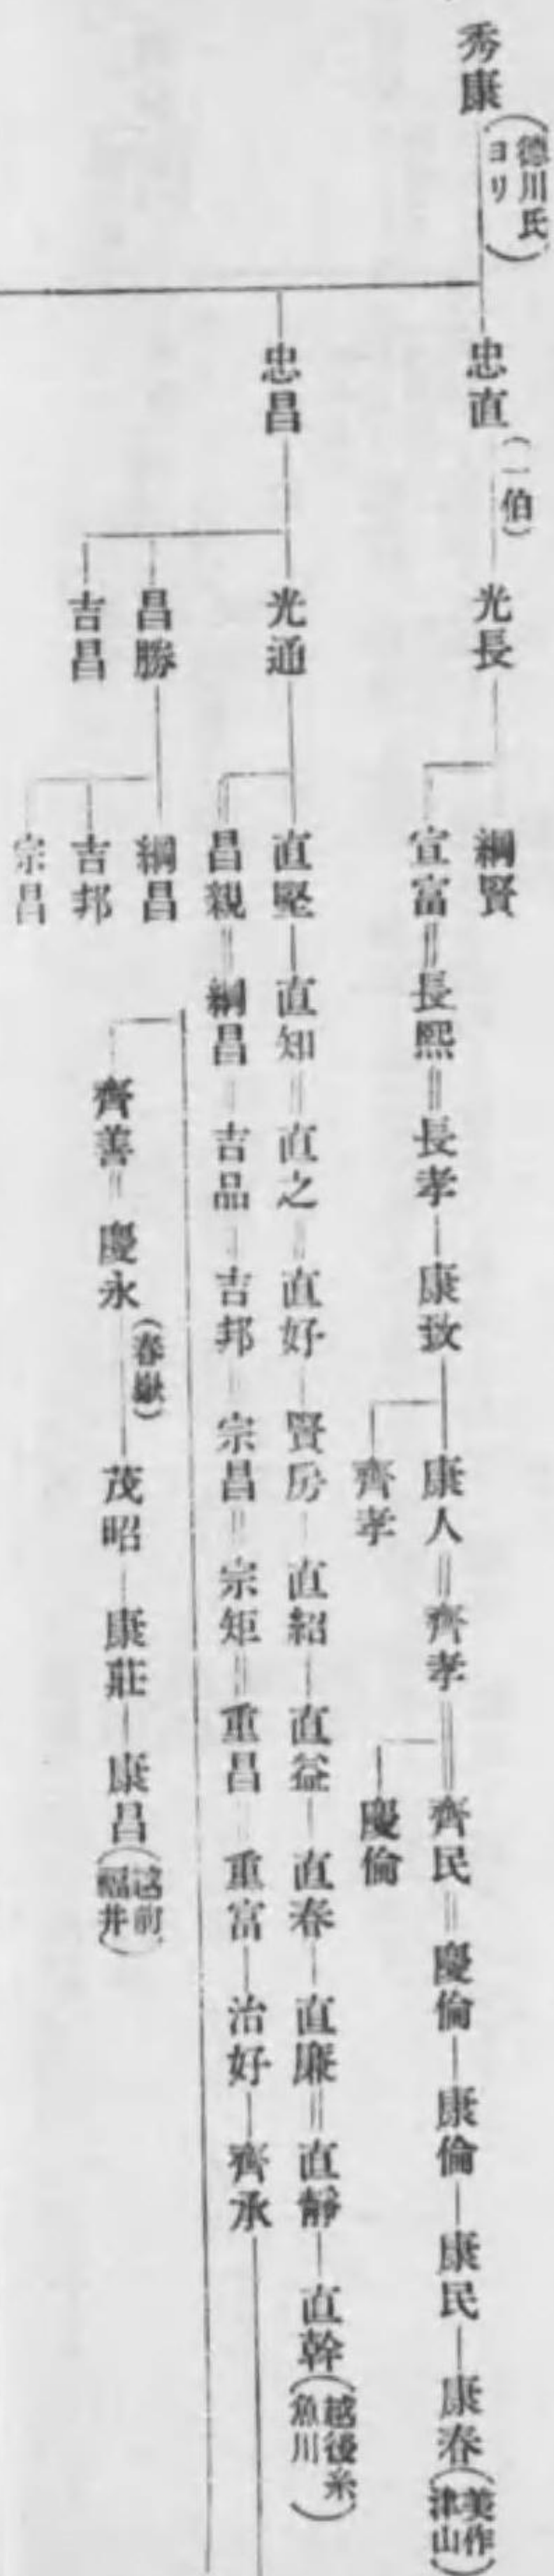 秀康（德川氏ヨリ）
忠直（一伯）
光長
綱賢
宣富＝長熙＝長孝―康致―康人＝齊孝＝齊民＝慶倫―康倫―康民―康春（美作津山）
齊孝
慶倫
忠昌
光通
直堅―直知＝直之＝直好―賢房―直紹―直益―直春―直廉＝直靜―直幹（越後糸魚川）
昌親＝綱昌＝吉品―吉邦＝宗昌＝宗矩＝重昌＝重富―治好―齊承
齊善＝慶永（春嶽）―茂昭―康莊―康昌（越前福井）
昌勝
綱昌
吉邦
宗昌
吉昌